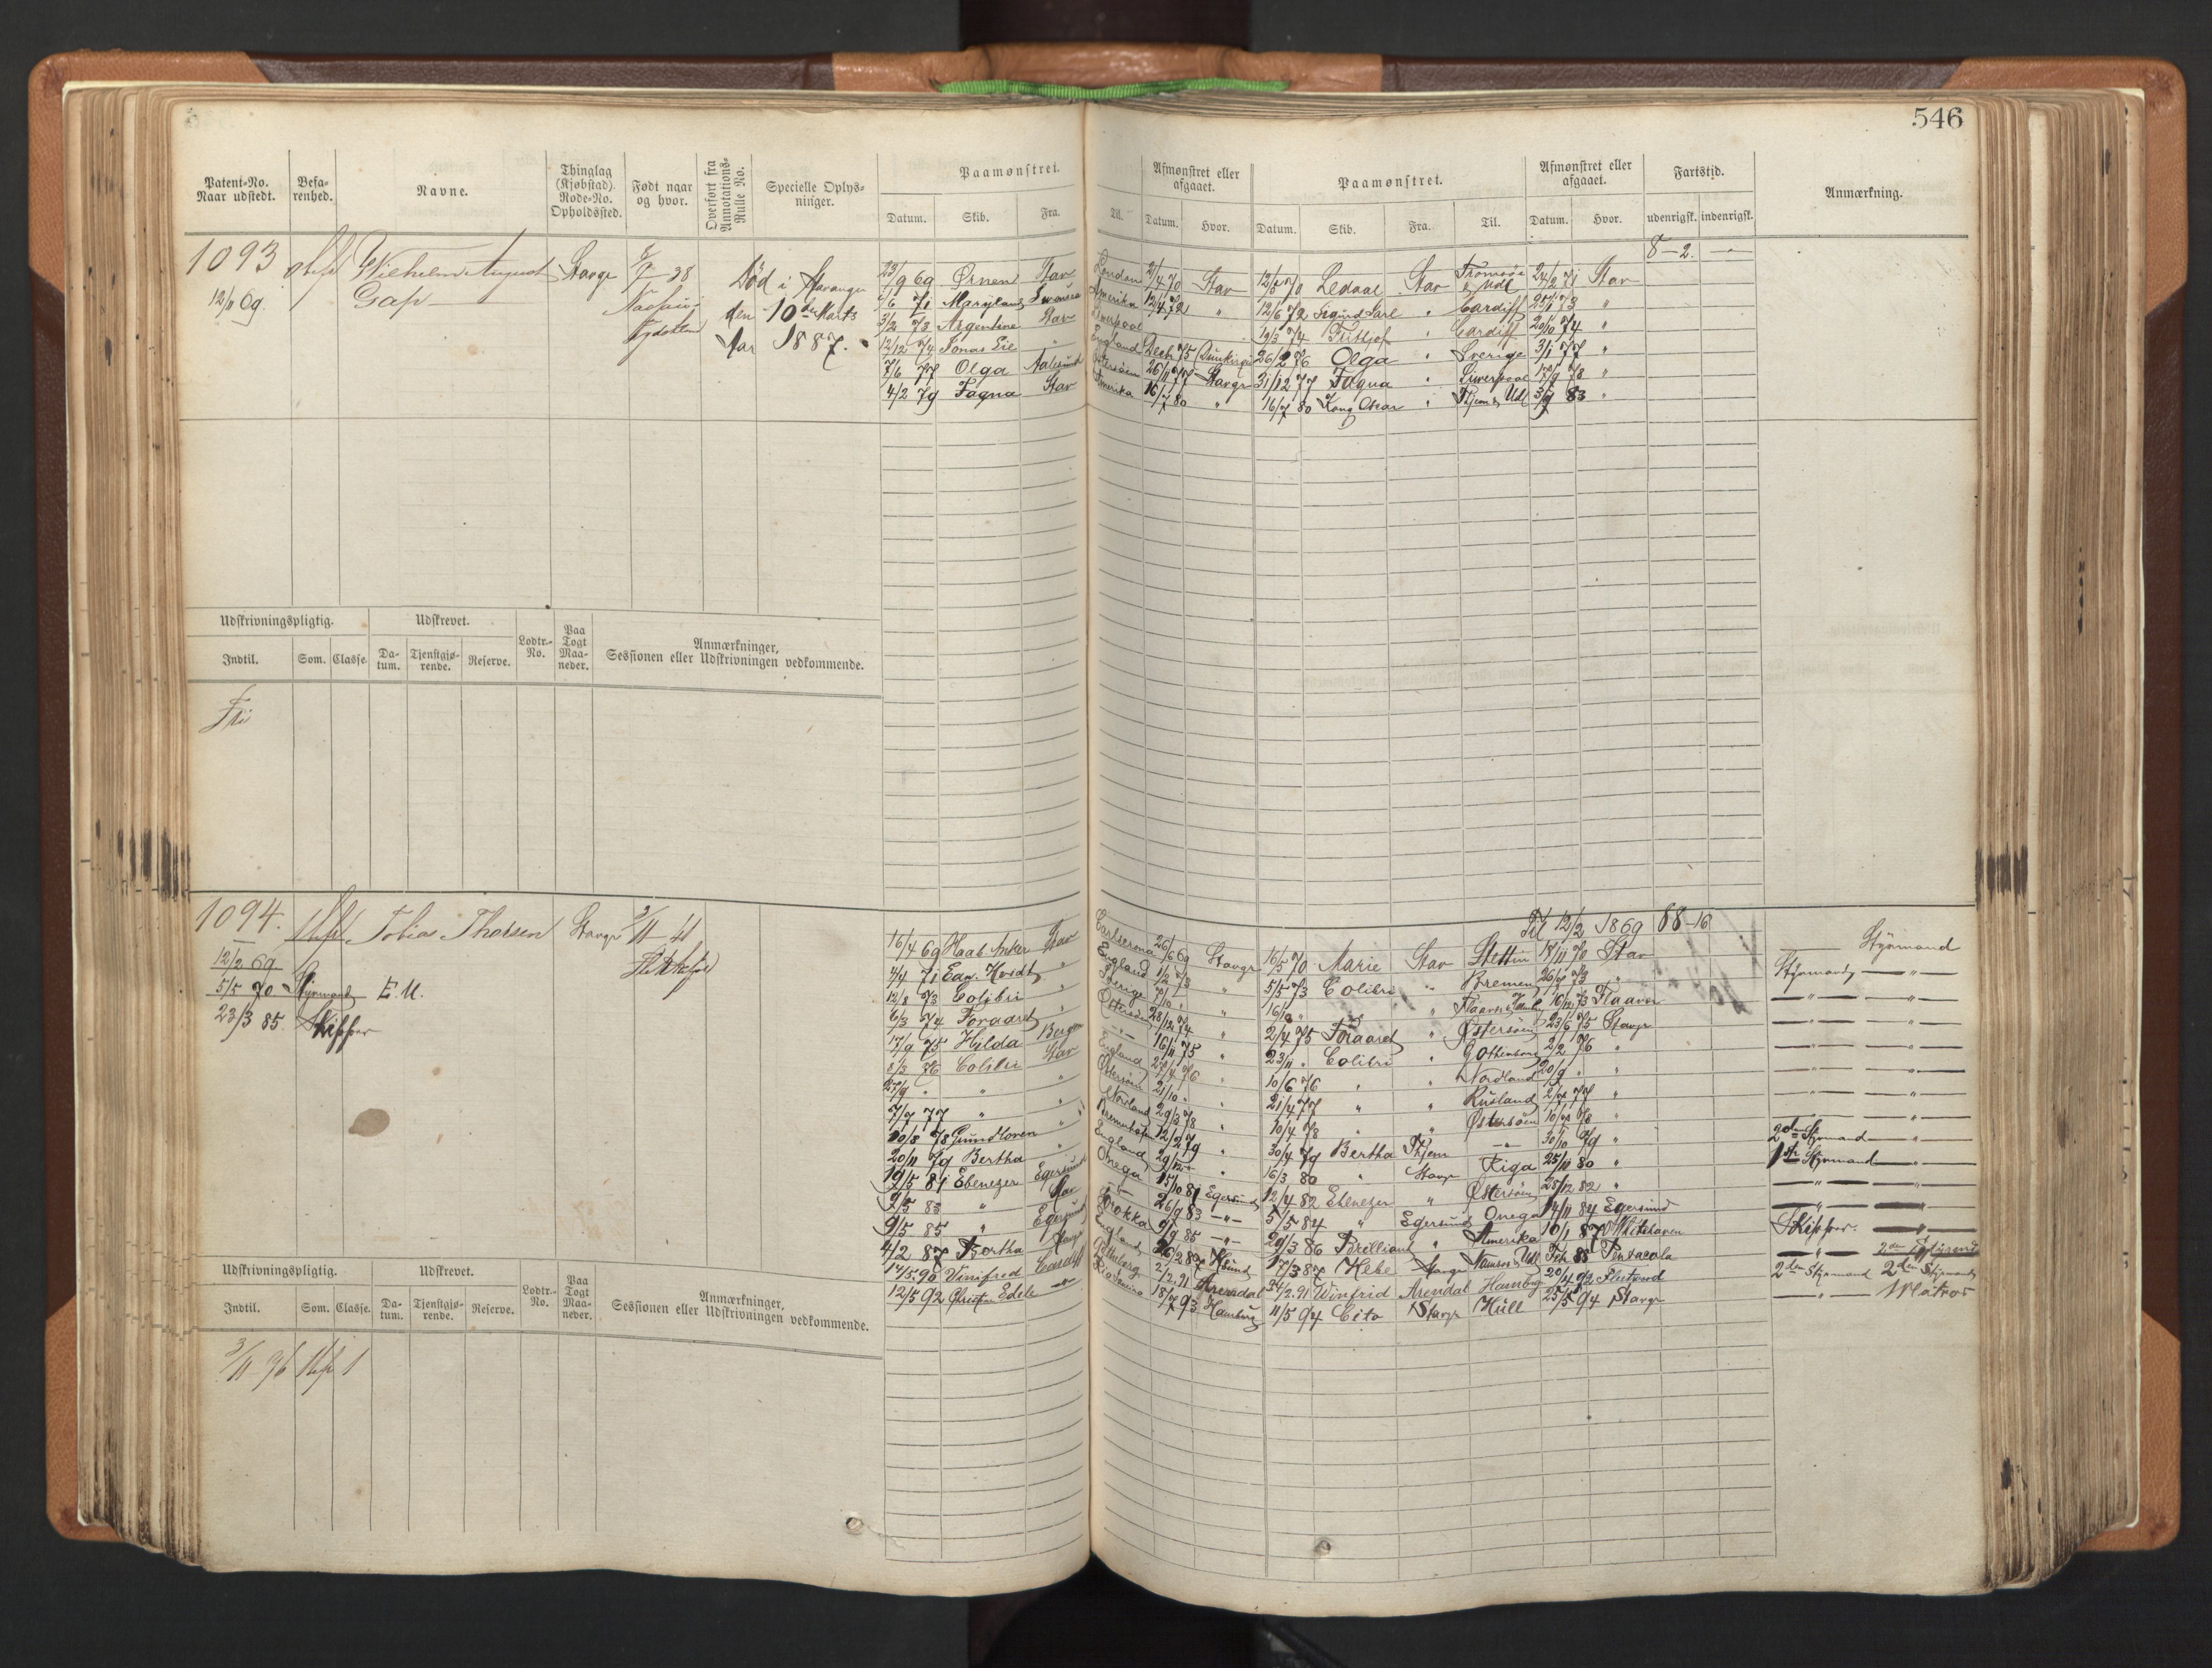 546
Patent-No. Naar udstedt. Befa-renhed. Navne. Thinglag (Kjøbstad). Rode-No. Opholdssted. Født naar og hvor. Overført fra Annotations-Rulle No. Specielle Oplys-ninger. Paamønstret. Afmønstret eller afgaaet. Paamønstret. Afmønstret eller afgaaet. Fartstid. Anmærkning.
Datum. Skib. Fra. Til. Datum. Hvor. Datum. Skib. Fra. Til. Datum. Hvor. udenrigsk. indenrigsk.
1093 Wilhelm August Stavgr 38 8-2. -
12/11 69.
Død i Stavanger
den 10de Marts
Aar 1887.
23/9 69 Ørnen Stav London 2/4 70 Stav 12/5 70 Ledaal Stav Tromsøe & Udl 24/2 71 Stav
71 Maryland Swansea Amerika 12/4 72 " 12/6 72 Sigurd Jarl " Cardiff 73 "
3/2 73 Argentine Stav Liverpool 19/3 74 Fritjof " Cardiff 20/10 74 "
12/12 74 Jonas Lie " England Decb 75 26/2 76 Olga " Sverige 3/1 77 "
7/6 77 Olga Aalesund Østersøen 26/11 77 Stavgr 31/12 77 Fagna " Liverpool 17/9 78 "
4/2 79 Fagna Stav Amerika 16/7 80 " 16/7 80 Kong Oscar " Thjem & Udl 83 "
Udskrivningspligtig. Udskrevet. Lodtr.-No. Paa Togt Maa-neder. Anmærkninger, Sessionen eller Udskrivningen vedkommende.
Indtil. Som. Classe. Da-tum. Tjenstgjø-rende. Reserve.
Fri
1094. Tobias Thorsen Stavgr 3/11 - 41 Til 12/2 1869 88-10
12/2 69.
5/5 70 Styrmand E. U.
23/3 85. Skipper
16/4 69 Haab Anker Stav Carlscrona 26/6 69 Stavgr 16/5 70 Marie Stav Stettin 18/11 70 Stav Styrmand
4/4 71 " England 1/2 73 " 5/5 73 Colibri " Bremen 73 " Styrmand - " -
12/8 73 Colibri " Sverige 7/10 " 16/10 " " 73 Flaavær - " - - " -
6/3 74 Foraaret " Østersøen 28/12 74 " 2/4 75 Foraaret " Østersøen 23/6 75 Stavgr - " - - " -
17/9 75 Hilda Bergen - " - 16/11 75 " 23/11 " Colibri " Gothenborg 2/2 76 " - " - - " -
8/3 76 Colibri Stav England 76 " 10/6 76 " " Nordland 20/9 " " - " - - " -
27/9 " " " Østersøen 21/10 " " 21/4 77 " " Rusland 77 " - " - - " -
7/9 77 " " Nordland 29/3 78 " 10/4 78 " " Østersøen 78 " - " -
20/8 78 " Bremerhafen 12/2 79 " 30/4 79 Bertha Thjem - " - 30/10 79 " 2den Styrmand - " -
20/11 79 Bertha " England " 16/3 80 " Stavgr Riga 25/11 80 " 1ste Styrmand - " -
19/5 81 Ebenezer Egersund Onega 15/10 81 Egersund 12/4 82 Ebenezer " Østersøen 28/12 82 " - " - - " -
9/5 83 " Stav - " - 26/9 83 - " - 5/5 84 " Egersund Onega 14/11 84 Egersund - " - - " -
9/5 85 " Egersund 9/9 85 - " - 29/3 86 Brilliant " Amerika 10/1 87 Whitehaven Skipper. - " -
4/2 87 Bertha Stavgr England 26/2 87 17/3 87 Hebe Stavgr Namsos & Udl Feb 88 Pensacola - " -
14/5 90 Vinifred Cardiff 2/2 91 Arendal 24/2 91 Winfrid Arendal Hamburg 20/4 92 Fleetwood 2den Styrmand 2den Styrmand
12/5 92 Edele - " - Rio Janeiro 18/7 93 Hamburg 11/5 94 Cito Stavgr Hull 25/5 94 Stavgr - " - Matros
Udskrivningspligtig. Udskrevet. Lodtr.-No. Paa Togt Maa-neder. Anmærkninger, Sessionen eller Udskrivningen vedkommende.
Indtil. Som. Classe. Da-tum. Tjenstgjø-rende. Reserve.
3/11 76 1